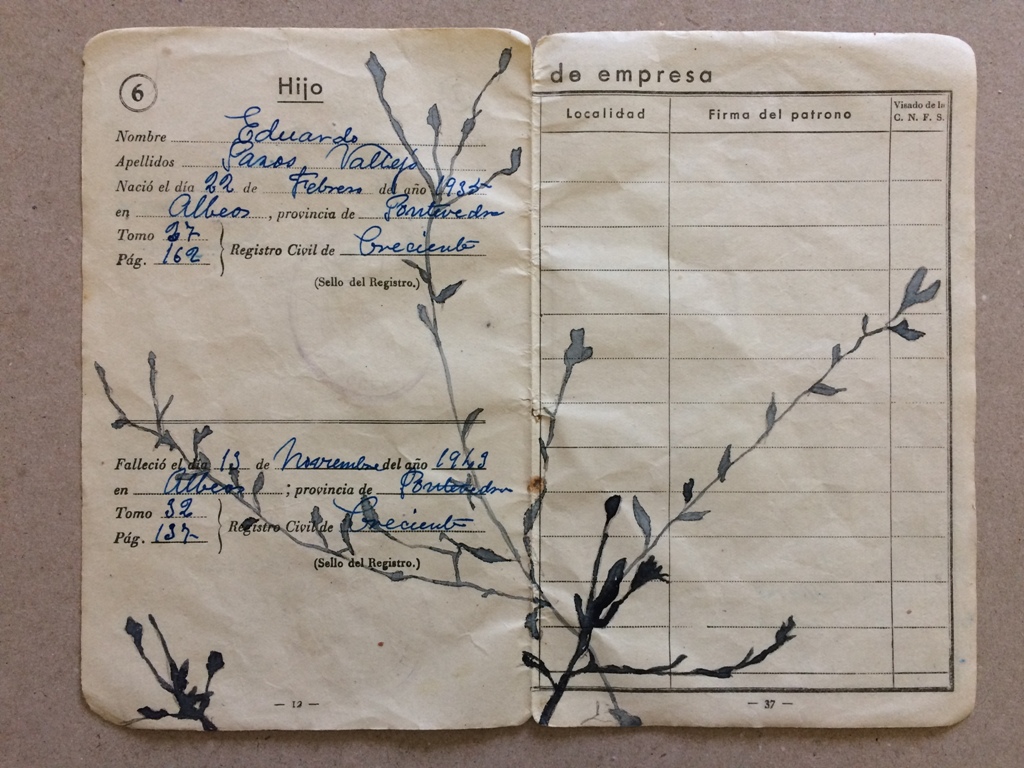 6
Hijo
Nombre Eduardo
Apellidos Pazos Vallejo
Nació el día 22 de Febrero del año 1935
en Albeos, provincia de Pontevedra
Tomo 27
Pág. 162
Registro Civil de Creciente
(Sello del Registro.)
Falleció el día 13 de Noviembre del año 1943
en Albeos; provincia de Pontevedra
Tomo 32
Pág. 137
Registro Civil de Creciente
(Sello del Registro.)
— 12 —
de empresa
Localidad Firma del patrono Visado de la
C. N. F. S.
— 37 —